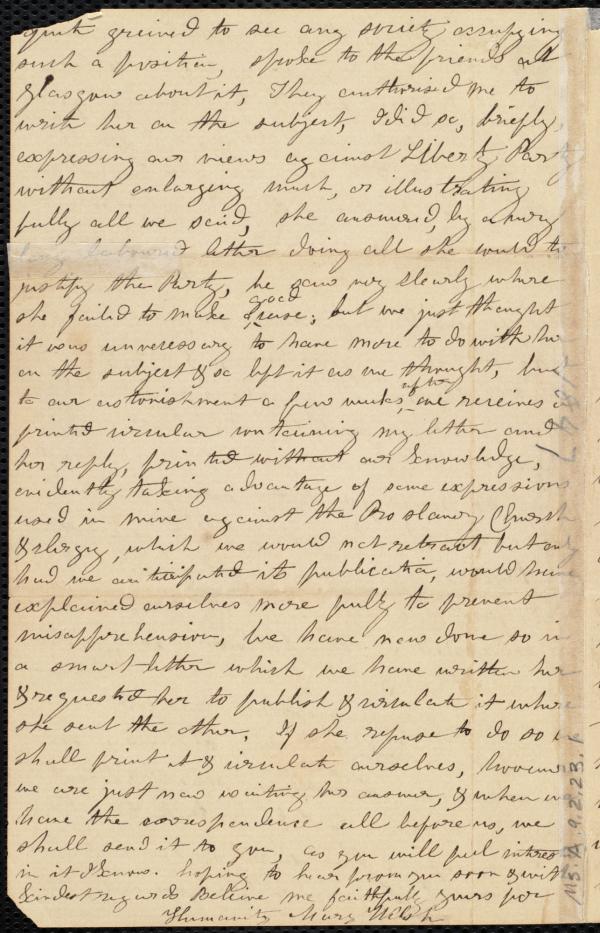 quite greived to see any society occupying
such a position, spoke to the friends at
Glasgow about it, They authorised me to
write her on the subject, I did so, briefly,
expressing our views against Liberty Party
without enlarging much, or illustrating
fully all we said, she answered, by a very
long laboured letter doing all she could to
justify the Party, we saw very clearly where
she failed to make good
case; but we just thought
it was unnecessary to have more to do with her
on the subject & so left it as we thought, but
to our astonishment a few weeks after we receives a
printed circular containing my letter and
her reply, printed without our knowledge,
evidently taking advantage of some expressions
used in mine against the Pro slavery Church
& clergy, which we would not retract but only
had we anticipated its publication, would have
explained ourselves more fully to prevent
misapprehension, We have now done so in
a smart letter which we have written her
& requested her to publish & circulate it where
she sent the other, If she refuse to do so we
shall print it & circulate ourselves, however
we are just now waiting her answer, & when we
have the correspondence all before us, we
shall send it to you, as you will feel interest
in it I know. hoping to hear from you soon & with
kindest regards Believe me faithfully yours for
Humanity Mary Welsh
1847
MS. A. 9. 2. 23. 1